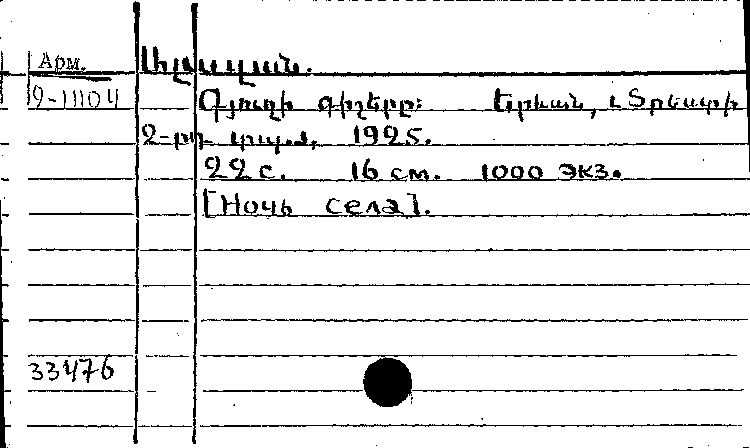 Арм.
2-11104
Գյուղի գիշերը: Երևան,
2-րդ տպ., 1925.
22 с. 16 см. 1000 экз.
[Ночь села].
33476